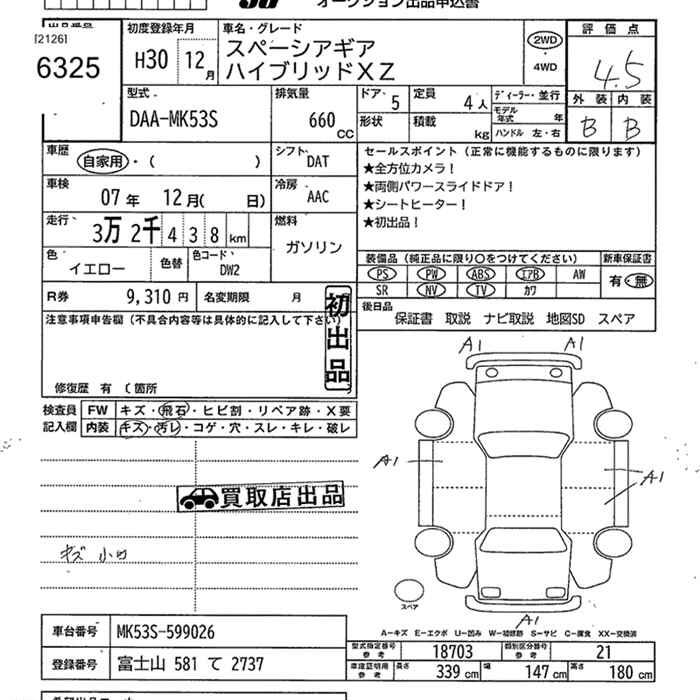 オークション出品申込書
出品番号
[2126]
6325
初度登録年月
H30 12月
車名・グレード
スペーシアギア
ハイブリッドXZ
2WD
4WD
評価点
4.5
外装 内装
B B
型式
DAA-MK53S
排気量
660 CC
ドア 5
定員 4人
形状
積載 kg
ディーラー・並行
モデル年式 年
ハンドル 左・右
車歴
自家用・( )
シフト
DAT
車検
07年 12月( 日)
冷房
AAC
走行
3万 2千 4 3 8 km
燃料
ガソリン
色
イエロー
色替
色コード
DW2
R券 9,310円 名変期限 月
セールスポイント(正常に機能するものに限ります)
★全方位カメラ！
★両側パワースライドドア！
★シートヒーター！
★初出品！
装備品(純正品に限り○をつけてください)
新車保証書
PS PW ABS エアB AW
SR NV TV カワ
有・無
後日品
保証書 取説 ナビ取説 地図SD スペア
注意事項申告欄(不具合内容等は具体的に記入して下さい)
初出品
修復歴 有 (箇所
検査員
記入欄
FW キズ・飛石・ヒビ割・リペア跡・X要
内装 キズ・汚レ・コゲ・穴・スレ・キレ・破レ
買取店出品
キズ 小凹
A1 A1
A1
A1
スペア
A1
A-キズ E-エクボ U-凹み W-補修跡 S-サビ C-腐食 XX-交換済
車台番号 MK53S-599026
登録番号 富士山 581 て 2737
型式指定番号 参考 18703 類別区分番号 参考 21
車庫証明用 参考 長さ 339cm 幅 147cm 高さ 180cm